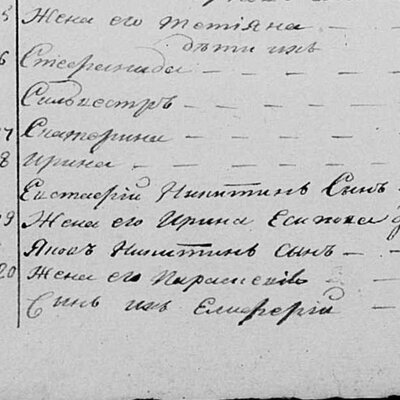 5 Жена его Тетіяна
дѣти ихъ
6 Стефанида
Сильвестръ
7 Екатерина
8 Ирина
Евстафій Никитинъ Сынъ
19 Жена его Ирина Есипова
Яковъ Никитинъ сынъ
20 Жена его Параскевія
Сынъ ихъ Елиферій